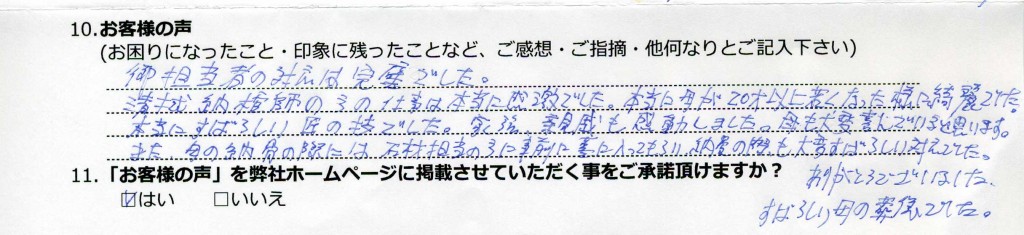 10.お客様の声
(お困りになったこと・印象に残ったことなど、ご感想・ご指摘・他何なりとご記入下さい)
御担当者の対応は完璧でした。
納棺師の方の仕事は本当に感激でした。本当に母が20才以上若くなった様に綺麗でした。
本当にすばらしい匠の技でした。家族 親戚も感動しました。母も大変喜んでいると思います。
また 母の納骨の際には 石材担当の方に事前に に入ってもらい、納骨の際も大変すばらしい対応でした。
ありがとうございました。
すばらしい母の葬儀でした。
11.「お客様の声」を弊社ホームページに掲載させていただく事をご承諾頂けますか？
☑はい □いいえ